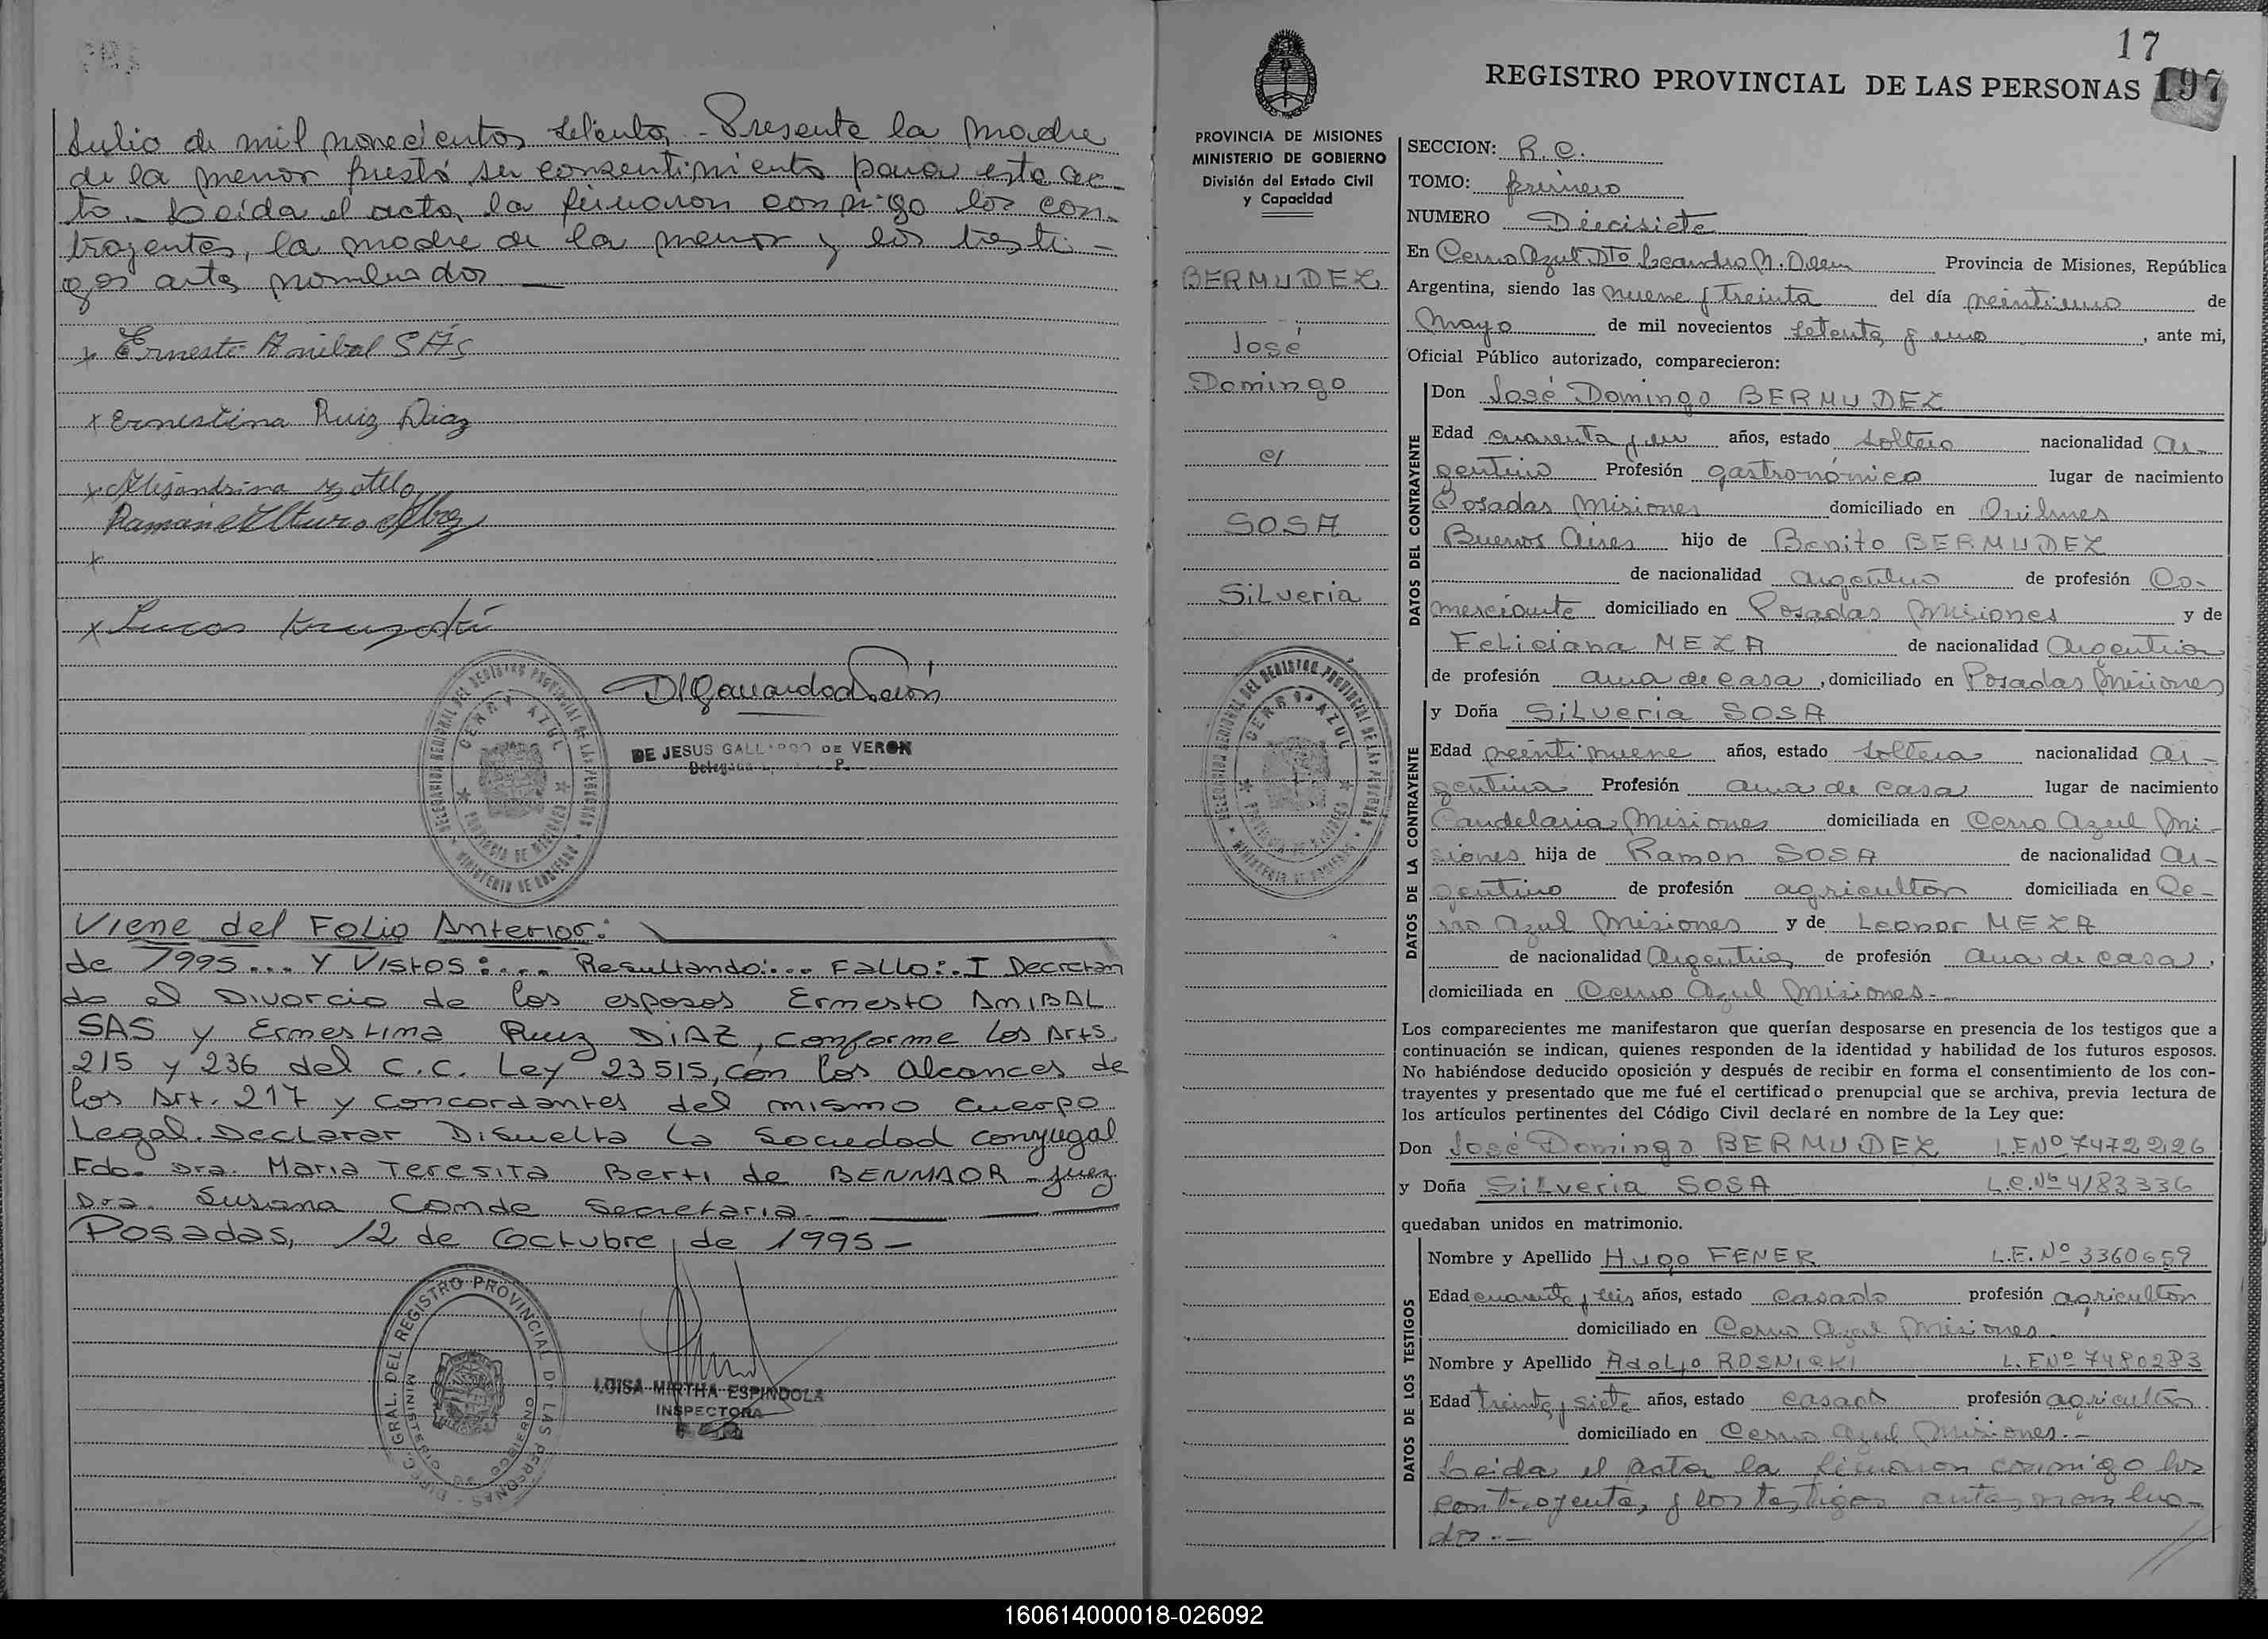 Julio de mil novecientos setenta.- Presente la madre
de la menor prestó su consentimiento para este ac-
to.- Leida el acta, la firmaron conmigo los con-
trayentes, la madre de la menor y los testi-
gos antes nombrados
x Ernesto Anibal SÁS
x Ernestina Ruiz Diaz
x Alejandrina Zotelo
Ramón Arturo
x
x Lucas
DE JESUS GALLARDO DE VERON
CERRO AZUL
Viene del Folio Anterior:
de 1995... Y Vistos:... Resultando:... Fallo:. I Decretan
do el Divorcio de los esposos Ernesto ANIBAL
SAS y Ernestina Ruiz DIAZ, conforme los Arts.
215 y 236 del C.C. Ley 23515, con los alcances de
los Art. 217 y concordantes del mismo cuerpo
Legal. Declarar Disuelta la Sociedad conyugal
Fdo. Dra. Maria Teresita Berti de BENMAOR - Juez.
Dra. Susana Conde Secretaria.
Posadas, 12 de Octubre de 1995 -
DIREC. GRAL. DEL REGISTRO PROVINCIAL D. LAS PERSONAS
LUISA MIRTHA ESPINDOLA
INSPECTORA
17
REGISTRO PROVINCIAL DE LAS PERSONAS 197
PROVINCIA DE MISIONES
MINISTERIO DE GOBIERNO
División del Estado Civil
y Capacidad
BERMUDEZ
José
Domingo
c/
SOSA
Silveria
CERRO AZUL
SECCION: R.C.
TOMO: primero
NUMERO Diecisiete
En Cerro Azul Dto Leandro N. Alem Provincia de Misiones, República
Argentina, siendo las nueve y treinta del día veintiuno de
Mayo de mil novecientos setenta y uno, ante mi,
Oficial Público autorizado, comparecieron:
DATOS DEL CONTRAYENTE
Don José Domingo BERMUDEZ
Edad cuarenta y un años, estado soltero nacionalidad ar-
gentino Profesión gastronómico lugar de nacimiento
Posadas Misiones domiciliado en Quilmes
Buenos Aires hijo de Benito BERMUDEZ
de nacionalidad argentino de profesión Co-
merciante domiciliado en Posadas Misiones y de
Feliciana MEZA de nacionalidad Argentina
de profesión ama de casa, domiciliado en Posadas Misiones
DATOS DE LA CONTRAYENTE
y Doña Silveria SOSA
Edad veintinueve años, estado soltera nacionalidad ar-
gentina Profesión ama de casa lugar de nacimiento
Candelaria Misiones domiciliada en Cerro Azul Mi-
siones hija de Ramon SOSA de nacionalidad Ar-
gentino de profesión agricultor domiciliada en Ce-
rro Azul Misiones y de Leonor MEZA
de nacionalidad Argentina, de profesión ama de casa,
domiciliada en Cerro Azul Misiones.-
Los comparecientes me manifestaron que querían desposarse en presencia de los testigos que a
continuación se indican, quienes responden de la identidad y habilidad de los futuros esposos.
No habiéndose deducido oposición y después de recibir en forma el consentimiento de los con-
trayentes y presentado que me fué el certificado prenupcial que se archiva, previa lectura de
los artículos pertinentes del Código Civil declaré en nombre de la Ley que:
Don José Domingo BERMUDEZ L.E Nº 7472226
y Doña Silveria SOSA L.C. Nº 4183336
quedaban unidos en matrimonio.
DATOS DE LOS TESTIGOS
Nombre y Apellido Hugo FENER L.E. Nº 3360659
Edad cuarenta y seis años, estado casado profesión agricultor
domiciliado en Cerro Azul Misiones.
Nombre y Apellido Adolfo ROSNICKI L. E Nº 7480283
Edad treinta y siete años, estado casado profesión agricultor
domiciliado en Cerro Azul Misiones.-
Leida el acta la firmaron conmigo los
contrayentes y los testigos antes nombra-
dos.-
160614000018-026092